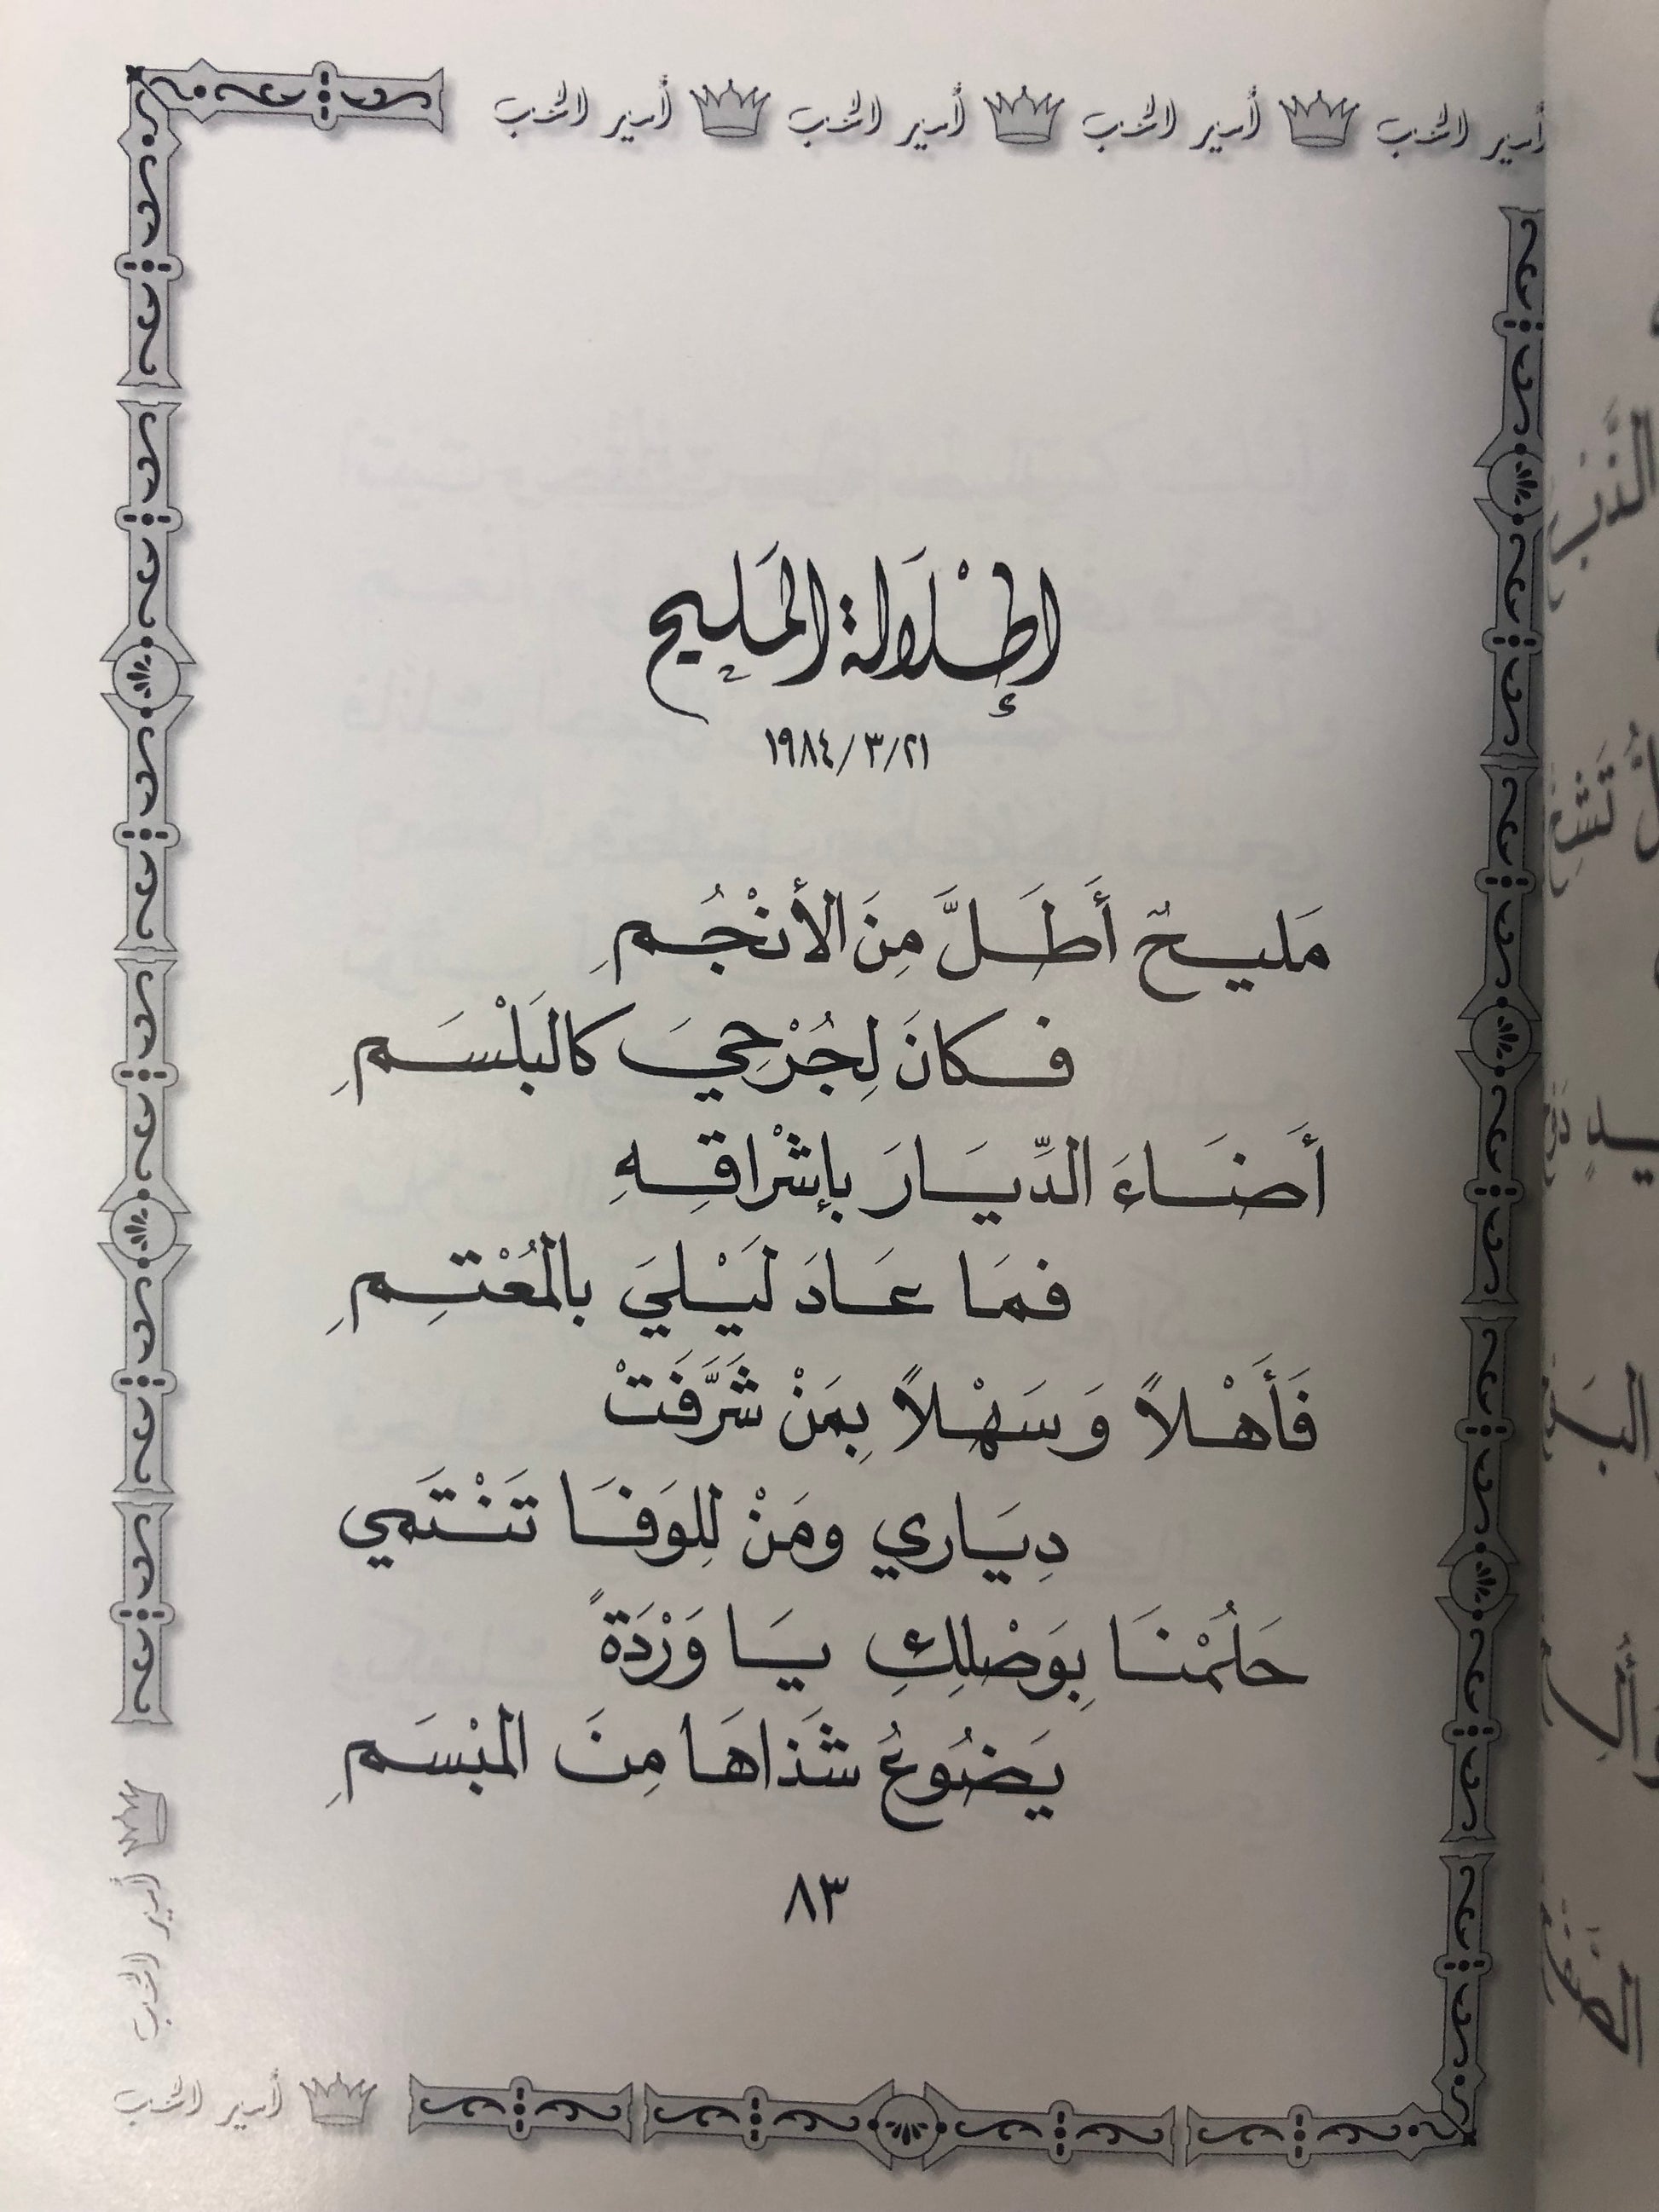 أمير الحب أمير الحب أمير الحب أمير الحب
إطْلَالَة المَليح
١٩٨٤/٣/٢١
مَليحٌ أَطَلَّ مِنَ الأنْجُمِ
فكانَ لِجُرْحِيَ كالبَلْسَمِ
أَضَاءَ الدِّيَارَ بإشْراقِهِ
فمَا عَادَ لَيْليَ بالمُعْتِمِ
فَأَهْلاً وَسَهْلاً بِمَنْ شَرَّفَتْ
دِيَاري ومَنْ لِلوَفَا تَنْتَمي
حَلُمْنَا بِوَصْلِكِ يَا وَرْدَةً
يَضُوعُ شَذاهَا مِنَ المَبْسَمِ
٨٣
أمير الحب
أمير الحب